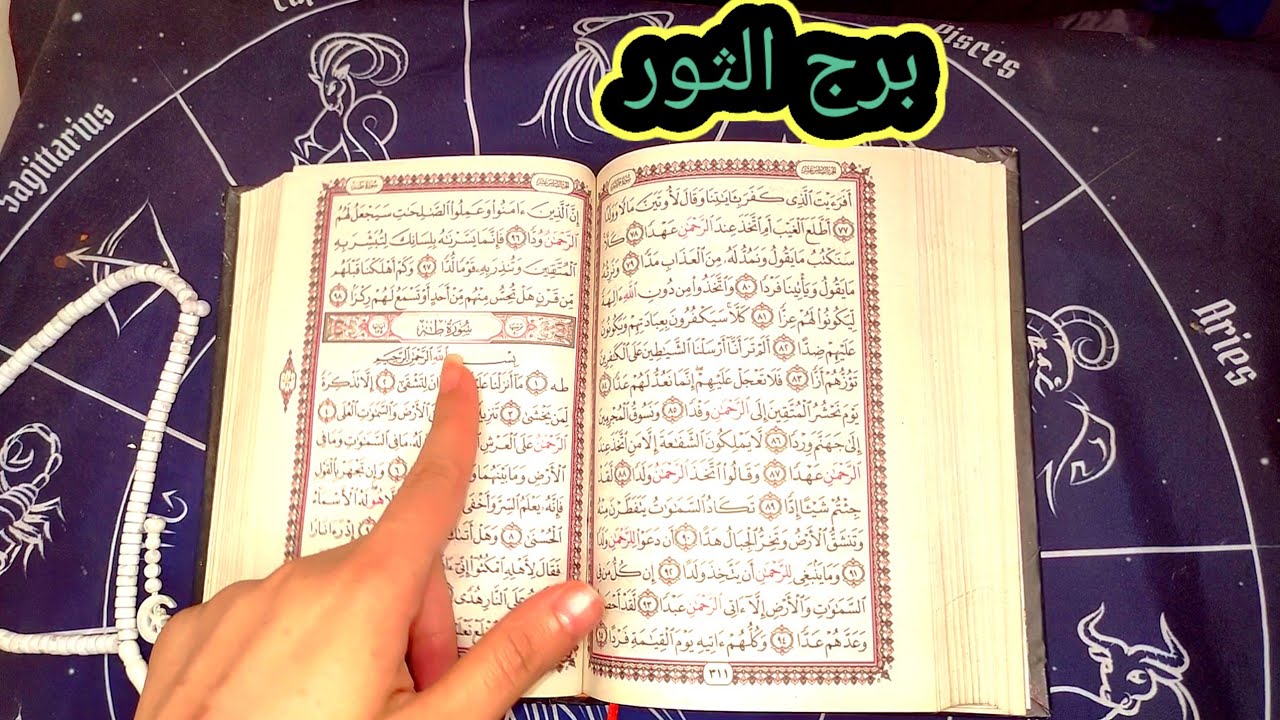 برج الثور
Pisces
Sagittarius
Aries
أَفَرَءَيْتَ ٱلَّذِى كَفَرَ بِـَٔايَٰتِنَا وَقَالَ لَأُوتَيَنَّ مَالًا وَوَلَدًا
٧٧ أَطَّلَعَ ٱلْغَيْبَ أَمِ ٱتَّخَذَ عِندَ ٱلرَّحْمَٰنِ عَهْدًا ٧٨ كَلَّا
سَنَكْتُبُ مَا يَقُولُ وَنَمُدُّ لَهُۥ مِنَ ٱلْعَذَابِ مَدًّا ٧٩ وَنَرِثُهُۥ
مَا يَقُولُ وَيَأْتِينَا فَرْدًا ٨٠ وَٱتَّخَذُوا۟ مِن دُونِ ٱللَّهِ ءَالِهَةً
لِّيَكُونُوا۟ لَهُمْ عِزًّا ٨١ كَلَّا سَيَكْفُرُونَ بِعِبَادَتِهِمْ وَيَكُونُونَ
عَلَيْهِمْ ضِدًّا ٨٢ أَلَمْ تَرَ أَنَّآ أَرْسَلْنَا ٱلشَّيَٰطِينَ عَلَى ٱلْكَٰفِرِينَ
تَؤُزُّهُمْ أَزًّا ٨٣ فَلَا تَعْجَلْ عَلَيْهِمْ إِنَّمَا نَعُدُّ لَهُمْ عَدًّا ٨٤
يَوْمَ نَحْشُرُ ٱلْمُتَّقِينَ إِلَى ٱلرَّحْمَٰنِ وَفْدًا ٨٥ وَنَسُوقُ ٱلْمُجْرِمِينَ
إِلَىٰ جَهَنَّمَ وِرْدًا ٨٦ لَّا يَمْلِكُونَ ٱلشَّفَٰعَةَ إِلَّا مَنِ ٱتَّخَذَ عِندَ
ٱلرَّحْمَٰنِ عَهْدًا ٨٧ وَقَالُوا۟ ٱتَّخَذَ ٱلرَّحْمَٰنُ وَلَدًا ٨٨ لَّقَدْ
جِئْتُمْ شَيْـًٔا إِدًّا ٨٩ تَكَادُ ٱلسَّمَٰوَٰتُ يَتَفَطَّرْنَ مِنْهُ
وَتَنشَقُّ ٱلْأَرْضُ وَتَخِرُّ ٱلْجِبَالُ هَدًّا ٩٠ أَن دَعَوْا۟ لِلرَّحْمَٰنِ وَلَدًا
٩١ وَمَا يَنۢبَغِى لِلرَّحْمَٰنِ أَن يَتَّخِذَ وَلَدًا ٩٢ إِن كُلُّ مَن فِى
ٱلسَّمَٰوَٰتِ وَٱلْأَرْضِ إِلَّآ ءَاتِى ٱلرَّحْمَٰنِ عَبْدًا ٩٣ لَّقَدْ
وَعَدَّهُمْ عَدًّا ٩٤ وَكُلُّهُمْ ءَاتِيهِ يَوْمَ ٱلْقِيَٰمَةِ فَرْدًا ٩٥
٣١١
إِنَّ ٱلَّذِينَ ءَامَنُوا۟ وَعَمِلُوا۟ ٱلصَّٰلِحَٰتِ سَيَجْعَلُ لَهُمُ
ٱلرَّحْمَٰنُ وُدًّا ٩٦ فَإِنَّمَا يَسَّرْنَٰهُ بِلِسَانِكَ لِتُبَشِّرَ بِهِ
ٱلْمُتَّقِينَ وَتُنذِرَ بِهِۦ قَوْمًا لُّدًّا ٩٧ وَكَمْ أَهْلَكْنَا قَبْلَهُم
مِّن قَرْنٍ هَلْ تُحِسُّ مِنْهُم مِّنْ أَحَدٍ أَوْ تَسْمَعُ لَهُمْ رِكْزًۢا ٩٨
سُورَةُ طه
بِسْمِ ٱللَّهِ ٱلرَّحْمَٰنِ ٱلرَّحِيمِ
طه ١ مَآ أَنزَلْنَا لِتَشْقَىٰٓ ٢ إِلَّا تَذْكِرَةً
لِّمَن يَخْشَىٰ ٣ ٱلْأَرْضَ وَٱلسَّمَٰوَٰتِ ٱلْعُلَى ٤
ٱلرَّحْمَٰنُ عَلَى ٱلْعَرْشِ مَا فِى ٱلسَّمَٰوَٰتِ وَمَا فِى
ٱلْأَرْضِ وَمَا بَيْنَهُمَا ٦ وَإِن تَجْهَرْ بِٱلْقَوْلِ
فَإِنَّهُۥ يَعْلَمُ ٱلسِّرَّ وَأَخْفَى هُوَ لَهُ ٱلْأَسْمَآءُ
ٱلْحُسْنَىٰ ٨ وَهَلْ أَتَىٰكَ إِذْ رَءَا نَارًا
فَقَالَ لِأَهْلِهِ ٱمْكُثُوٓا۟ إِنِّىٓ
عَلَى ٱلنَّارِ هُدًى